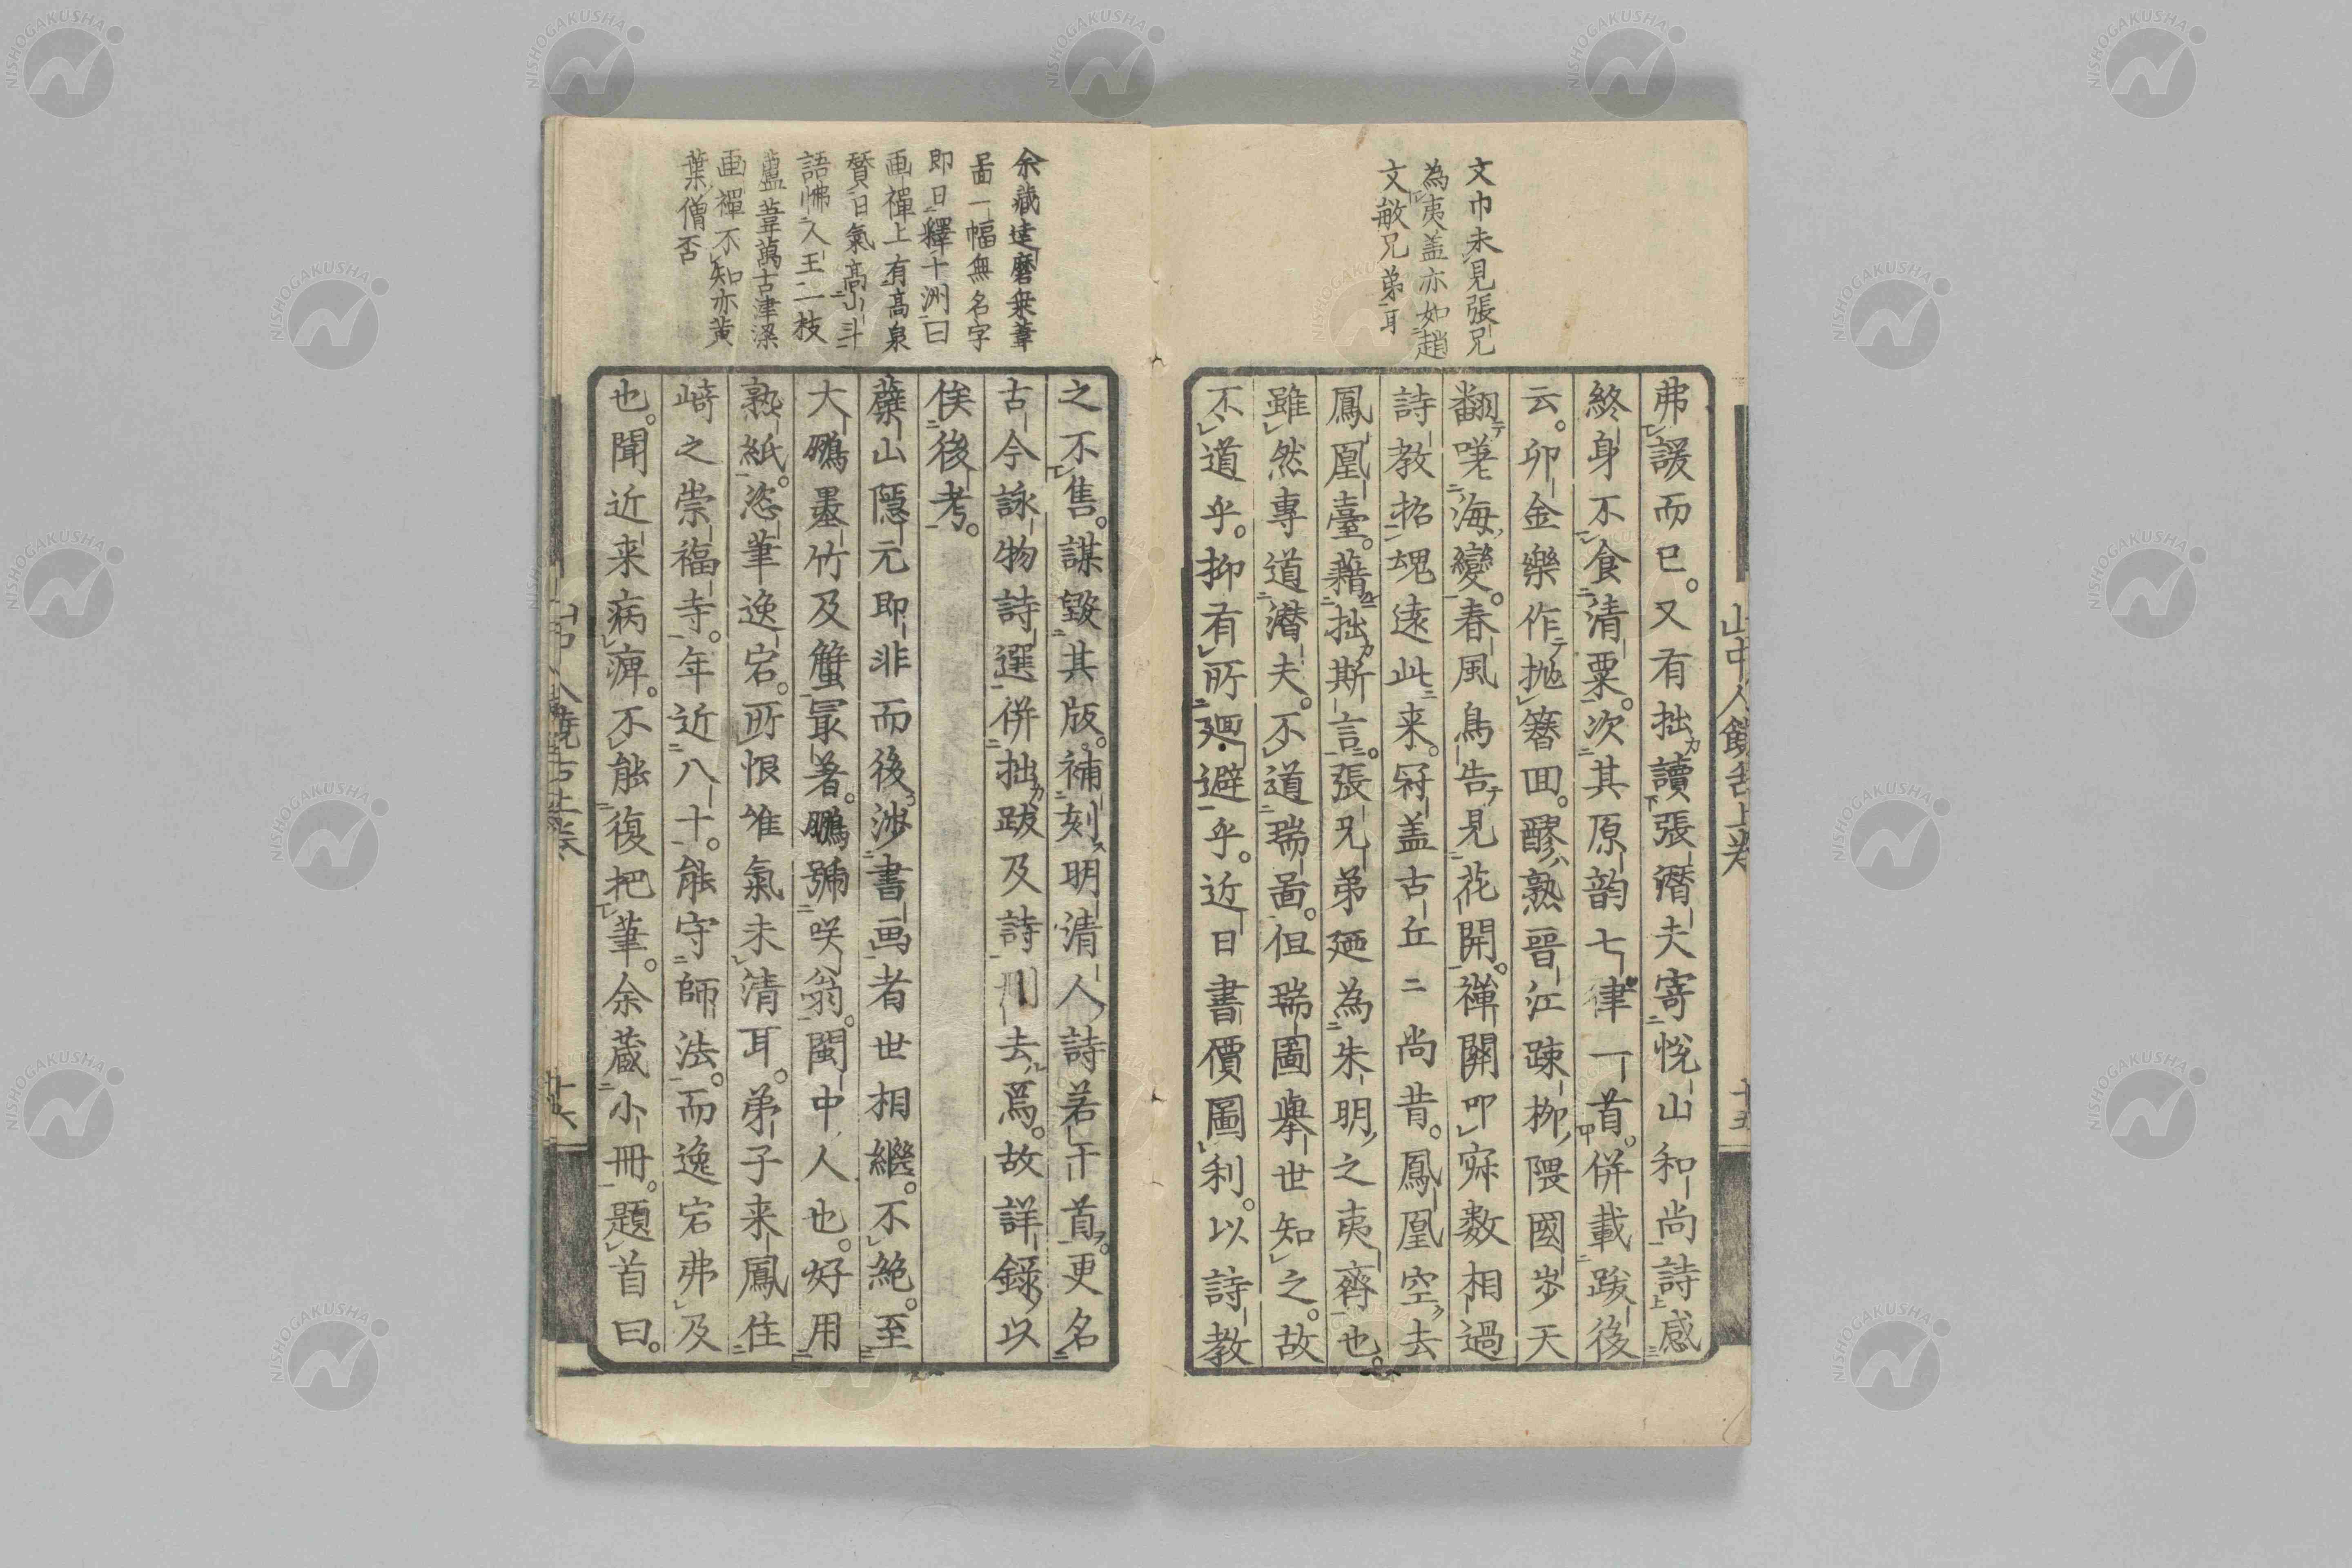 文巾未見張兄
為夷盖亦如趙
文敏兄弟耳
弗諼而已。又有拙讀張潛夫寄悅山和尚詩感
終身不食清粟。次其原韵七律一首。併載跋後
云。卯金樂作抛簪回。醪熟晋江踈柳隈國步天
翻嘆海變。春風鳥告見花開。禅關叩寂数相過
詩教招魂遠此来。冠盖古丘二尚昔。鳳凰空去
鳳凰臺。藉拙斯言。張兄弟廼為朱明之夷齊也。
雖然專道潛夫。不道瑞啚。但瑞圖擧世知之。故
不道乎。抑有所廻避乎。近日書價圖利。以詩教
山中人饒舌上巻
十五
余藏達磨乗葦
啚一幅無名字
即日釋十洲曰
画禅上有高泉
賛曰氣高小斗
語怫人王二枝
蘆葦萬古津梁
画禅不知亦黄
葉僧否
之不售。謀毀其版。補刻明清人詩若干首。更名
古今詠物詩選併拙跋及詩削去焉。故詳錄以
俟後考。
蘗山隱元即非而後涉書画者世相繼。不絶。至
大鵬墨竹及蟹最著。鵬號咲翁。閩中人也。好用
熟紙。恣筆逸宕。所恨唯氣未清耳。弟子来鳳住
崎之崇福寺。年近八十。能守師法。而逸宕弗及
也。聞近来病痺。不能復把筆。余蔵小冊。題首曰。